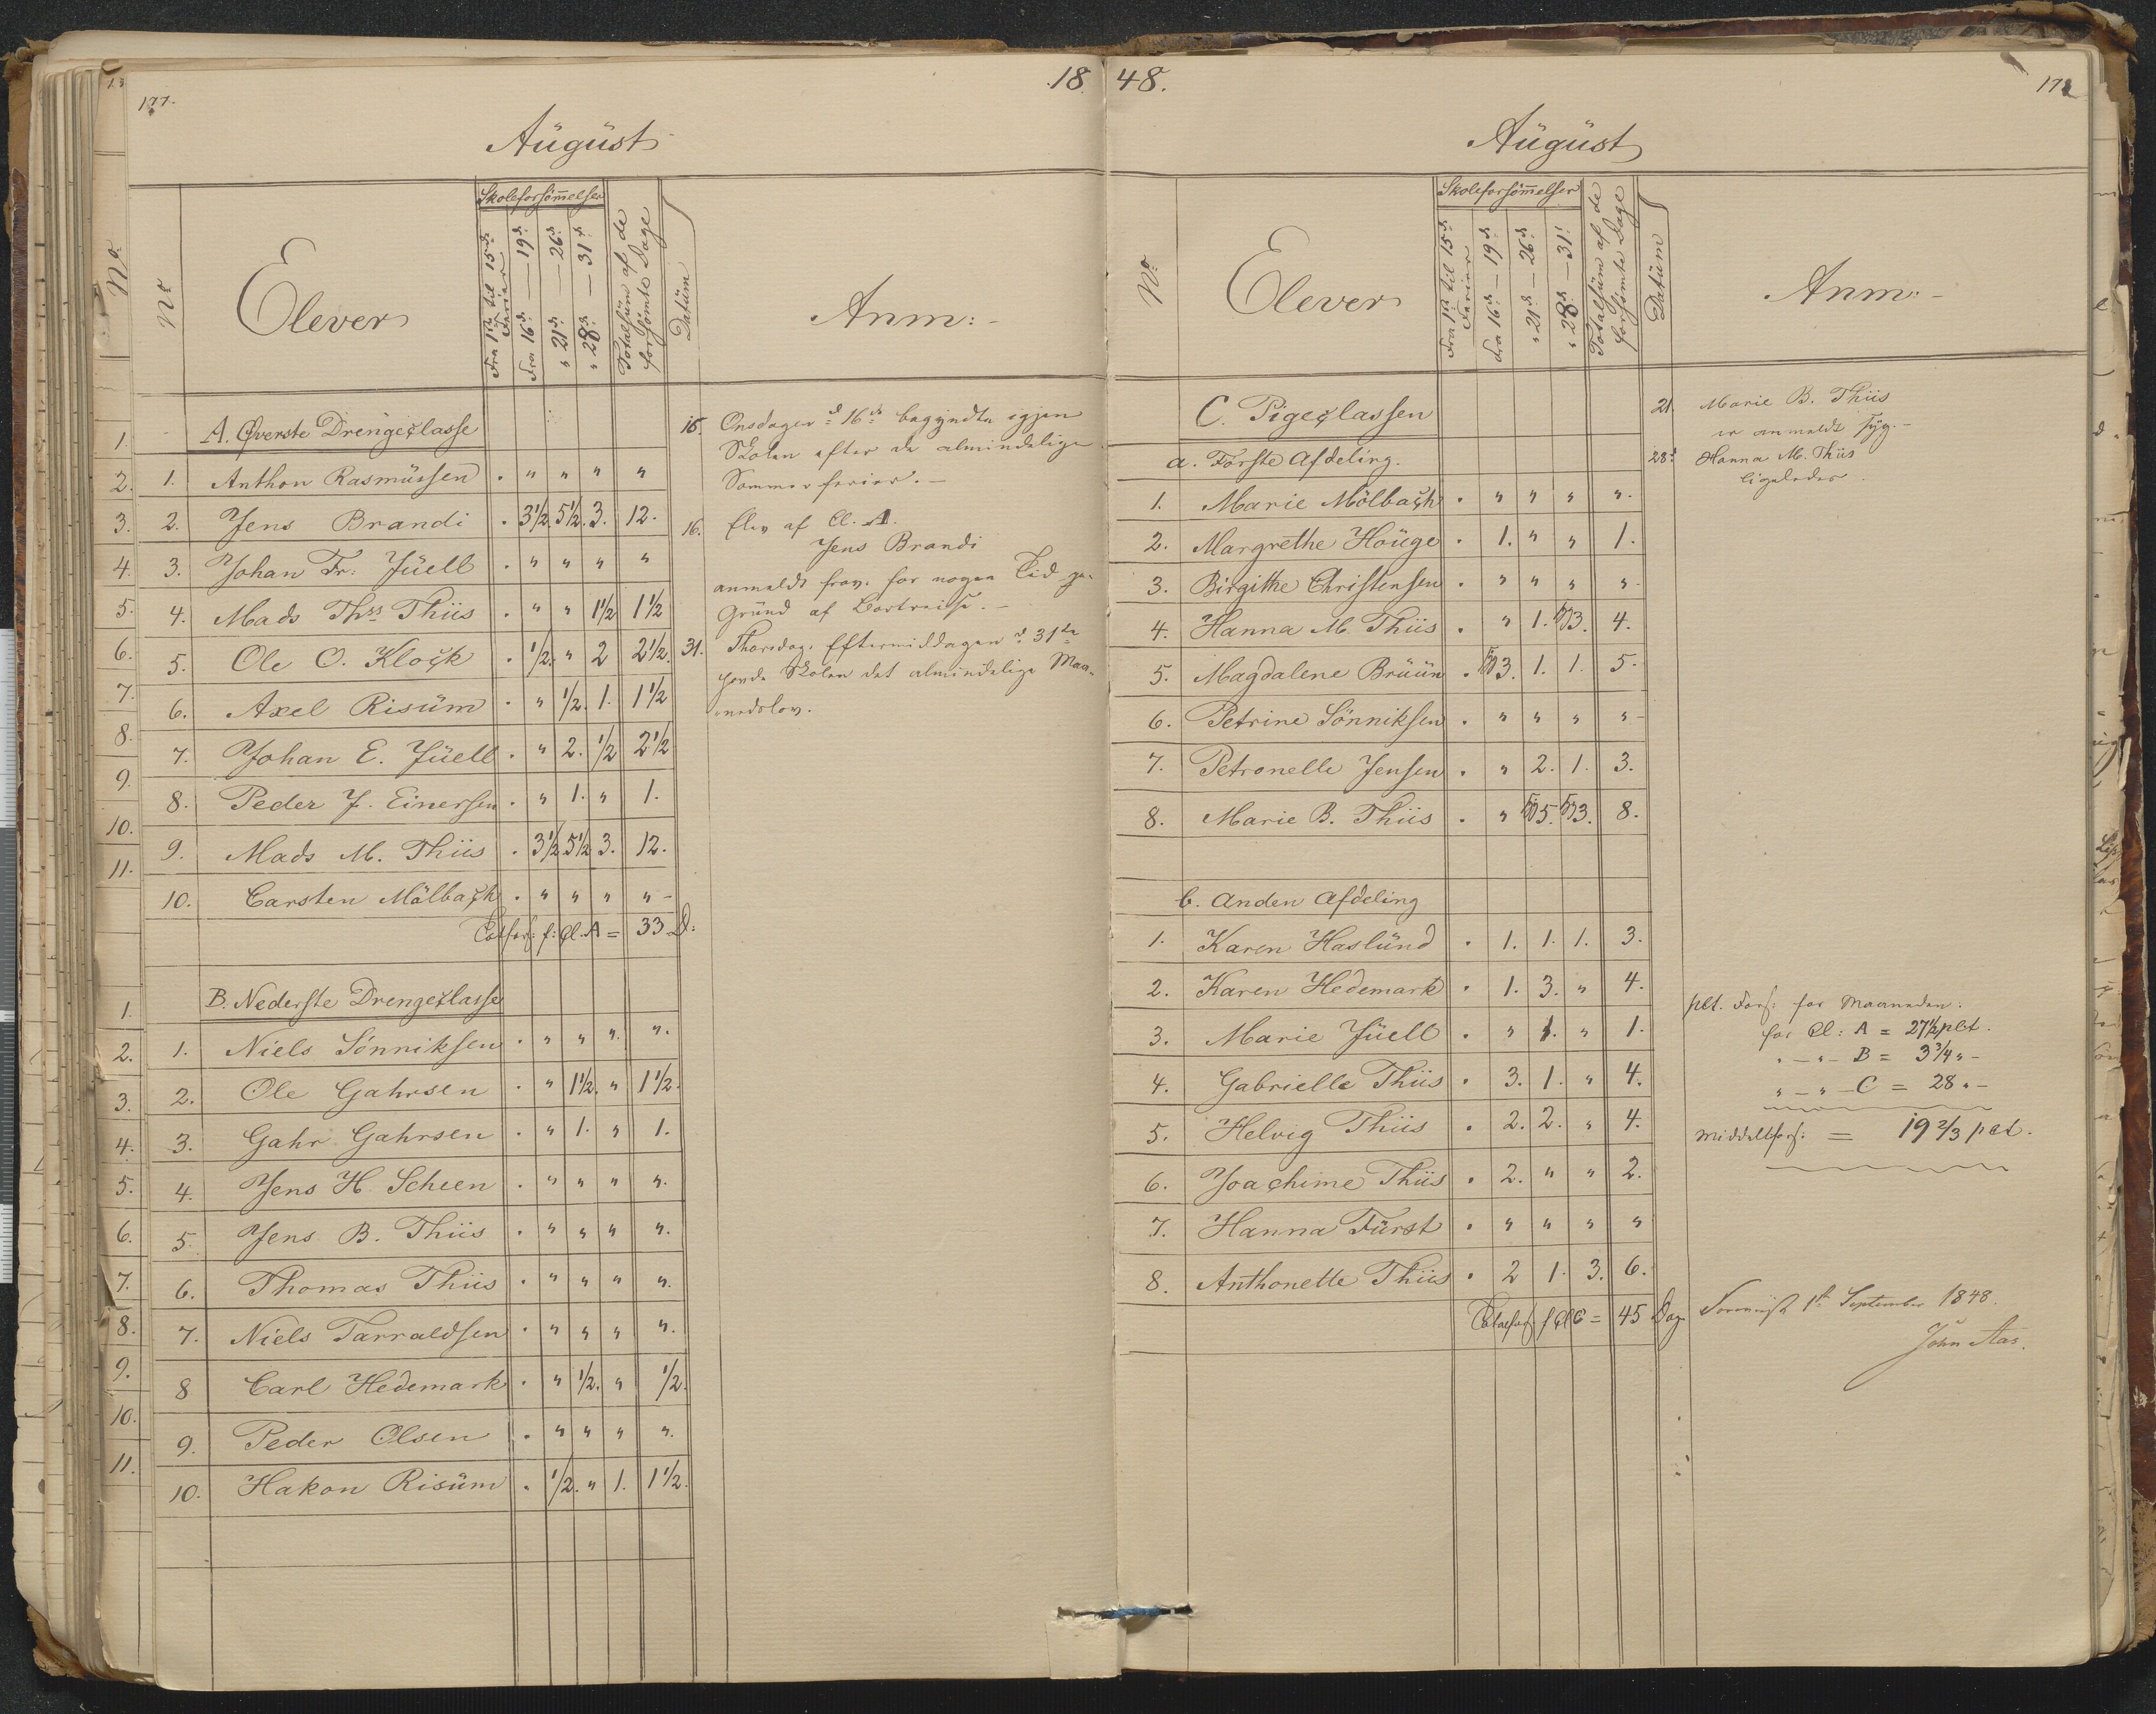 177.
18
August
No.
Nr
Elever
Skoleforsömelser
Fra 1ste til 15de Ferier
Fra 16d: — 19d:
" 21d: — 26d:
" 28d: — 31d:
Totalsum af de forsömte Dage
Datum
Anm:-
A. Øverste Drengeclasse
1. Anthon Rasmussen . " " " "
2. Jens Brandi . 3½. 5½. 3. 12.
3. Johan Fr: Juell . " " " "
4. Mads Ths Thiis . " " 1½ 1½
5. Ole O. Klock . ½. " 2 2½.
6. Axel Risum . " ½. 1. 1½
7. Johan E. Juell . " 2. ½ 2½
8. Peder J. Einersen . " 1. " 1.
9. Mads M. Thiis . 3½ 5½ 3. 12.
10. Carsten Mölbach . " " " "-
Totfors: f: Cl. A = 33 D:
B. Nederste Drengeclasse
1. Niels Sönniksen . " " ". ".
2. Ole Gahrsen . " 1½. " 1½.
3. Gahr Gahrsen . " 1. " 1.
4. Jens H. Scheen . " " " ".
5. Jens B. Thiis . " " " ".
6. Thomas Thiis . " " " ".
7. Niels Tarraldsen . " " " ".
8 Carl Hedemark . " ½. " ½.
9. Peder Olsen . " " " ".
10. Hakon Risum . ½. " 1. 1½.
1.
2.
3.
4.
5.
6.
7.
8.
9.
10.
11.
1.
2.
3.
4.
5.
6.
7.
8.
9.
10.
11.
Onsdagen d 16de begyndte igjen
Skolen efter de almindelige
Sommerferier. -
16. Elev af Cl. A.
Jens Brandi
anmeldt frav. for nogen Tid
Grund af Bortreise. -
31. Thorsdag Eftermiddagen d 31te
havde Skolen det almindelige Maa-
nedslov.
48.
178
August
Nr
Elever
Skoleforsömmelser
Fra 1ste til 15d: Ferier
Fra 16d: — 19d:
" 21d — 26d
" 28d — 31!
Totalsum af de forsömte Dage
Datum
Anm:-
C. Pigeclassen
a. Förste Afdeling.
1. Marie Mölbach . " " " ".
2. Margrethe Houge . 1. " " 1.
3. Birgithe Christensen . " " " "-
4. Hanna M. Thiis . " 1. 3. 4.
5. Magdalene Bruun . 3. 1. 1. 5.
6. Petrine Sönniksen . " " " "-
7. Petronelle Jensen . " 2. 1. 3.
8. Marie B. Thiis . " 5. 3. 8.
b. Anden Afdeling
1. Karen Haslund . 1. 1. 1. 3.
2. Karen Hedemark . 1. 3. " 4.
3. Marie Juell . " 1. " 1.
4. Gabrielle Thiis . 3. 1. " 4.
5. Helvig Thiis . 2. 2. " 4.
6. Joachime Thiis . 2. " " 2.
7. Hanna Fürst . " " " "
8. Anthonette Thiis . 2 1. 3. 6.
Totalfors: f Cl C = 45 Dag
21. Marie B. Thiis
er anmeldt syg. -
28d Hanna M. Thiis
ligeledes.
pct. Fors: for Maaneden:
for Cl: A = 27½ pct.
" - " - B = 3¾ " -
" - " - C = 28 " -
Middelfors: = 19⅔ pct.
1ste September 1848.
John Aas.